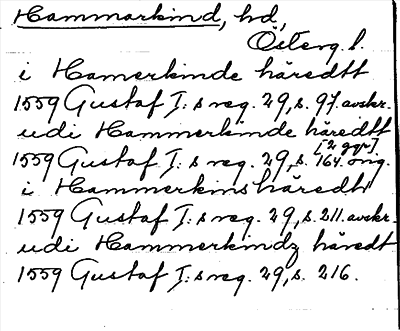 Hammarkind, hd,
Österg. l.
i Hamerkinde häredtt
1559 Gustaf I:s reg. 29, s. 97. avskr.
udi Hammerkinde häredtt
[2 ggr].
1559 Gustaf I:s reg. 29, s. 164. orig.
i Hammerkins häredtt
1559 Gustaf I:s reg. 29, s. 211. avskr.
udi Hammerkindz häredt
1559 Gustaf I:s reg. 29, s. 216.